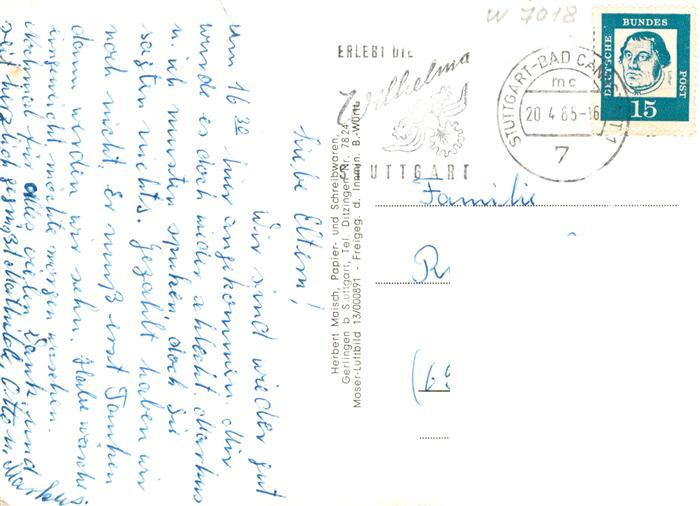 W 7018
ERLEBT DIE
Wilhelma
STUTTGART
STUTTGART-BAD CANNSTATT 1
mc
20.4.65-16
7
DEUTSCHE
BUNDES
POST
15
Familie
R
(6
Herbert Maisch, Papier- und Schreibwaren,
Gerlingen b. Stuttgart, Tel. Ditzingen Nr. 7824
Moser-Luftbild 13/000891 - Freigeg. d. Innmin. B.-Württ.
Liebe Eltern!
Wir sind wieder gut
um 16 30 hier angekommen. Mir
wurde es doch wieder schlecht. Markus
u. ich mussten spuken, doch Sie
sagten nichts. Gezahlt haben wir
noch nicht, er muß erst Tanken
dann werden wir sehn. Habe wäsche
eingeweicht möchte morgen waschen.
Nochmal für alles vielen Dank und
seid herzlich gegrüßt Mathilde Otto u. Markus.